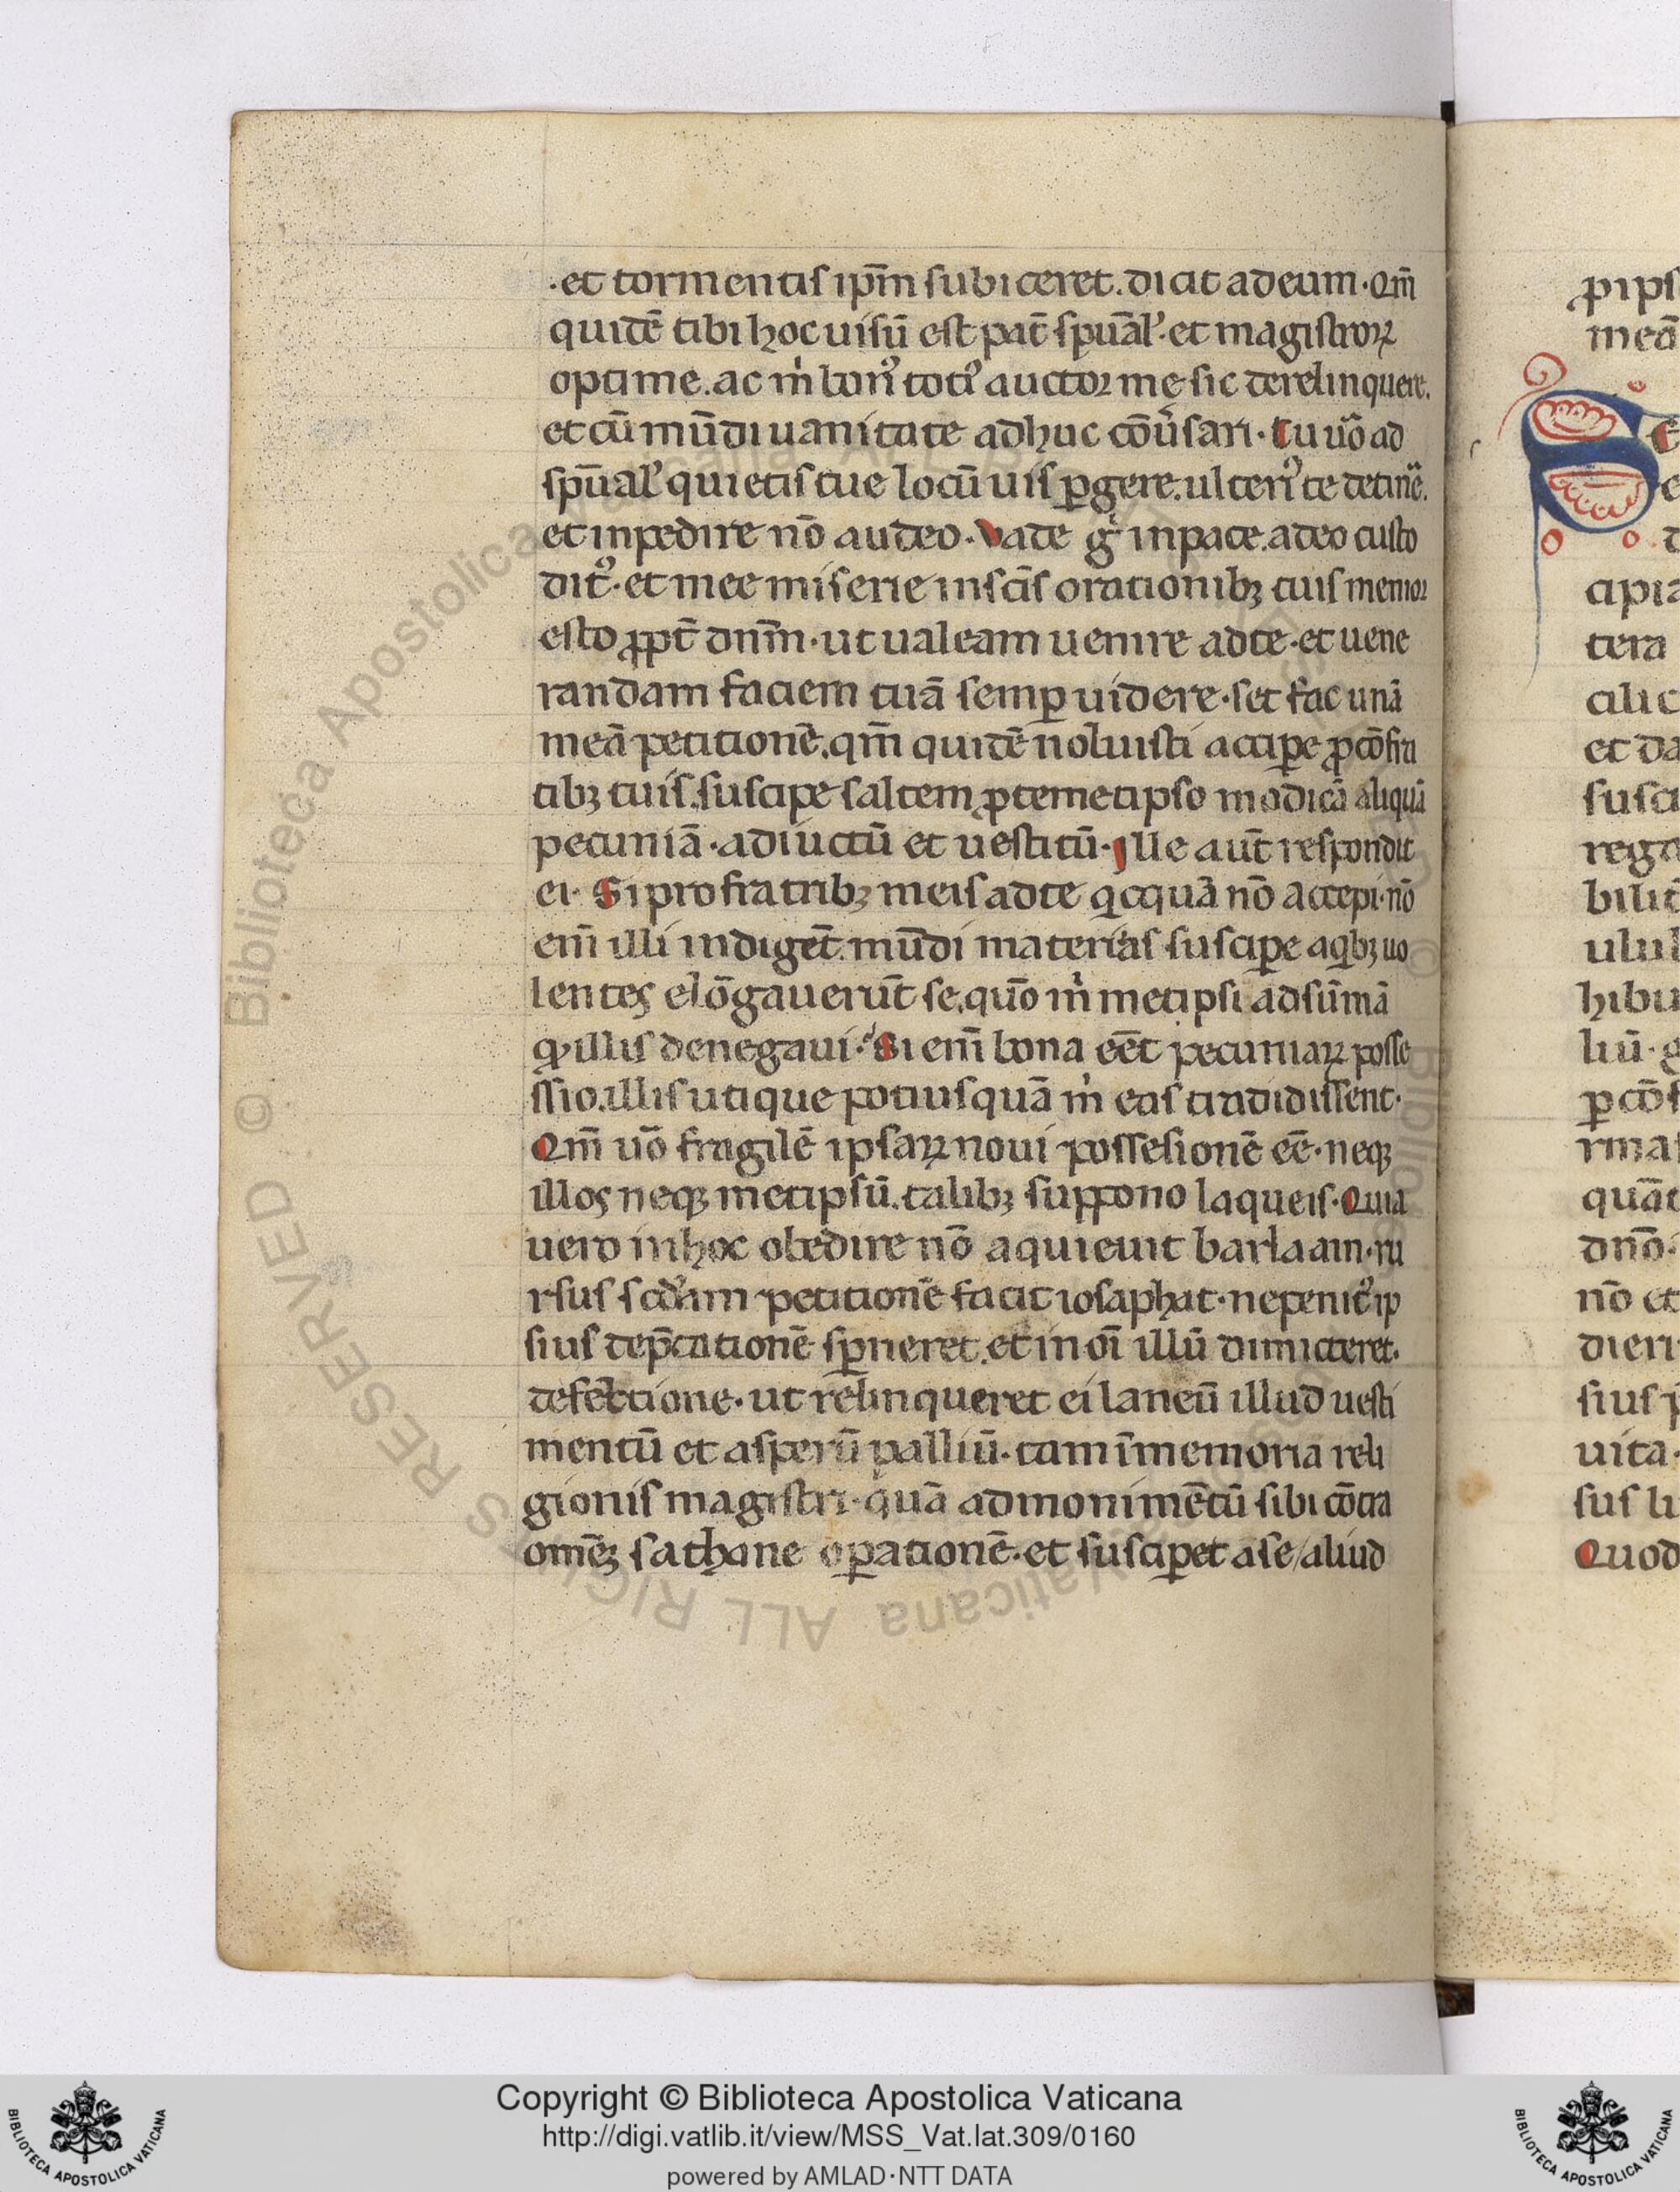 ·et tormentis ip̄m subiceret. dicit ad eum· Qm̄
quidē tibi hoc uisū est pat̄ sp̄uāl'·et magistroꝝ
optime. ac m̊ bon᷒ toti᷒ auctor me sic derelinquere.
et cū mūdi uanitate adhuc cōu̓sari· Tu uō ad
sp̄ual' quietis tue locū uis ꝑgere. ulteri᷒ te detinē.
et inpedire nō audeo· Vade g̊ in pace. a deo custo
dit᷒· et mee miserie in sc̄is orationibꝫ tuis memor
esto ꝓpt̄ dn̄m· ut ualeam uenire ad te· et uene
randam faciem tuā semꝑ uidere· set fac unā
meā petitionē. qm̄ quidē noluisti acciꝑe ꝓ cōfra
tibꝫ tuis. suscipe saltem ꝓ temetipso modicā aliquā
pecuniā· ad uictū et uestitū· Ille aūt respondit
ei· Si pro fratribꝫ meis a te q̇cquā nō accepi· nō
em̄ illi indigēt mūdi materias susciꝑe a q̇bꝫ uo
lentes elōgauerūt se. quō m̊ metipsi adsūmā
ꝙ illis denegaui· Si em̄ bona eēt pecuniaꝝ posse
ssio. illis utique potius quā m̊ eas tradidissent·
Qm̄ uō fragilē ipsaꝝ noui possesionē eē· neqꝫ
illos neqꝫ metipsū. talibꝫ suppono laqueis· Quia
uero in hoc obedire nō aquieuit barlaam· ru
rsus scd̓am petitionē facit iosaphat· ne penit᷒ ip
sius dep̄cationē sꝑneret. et in oī illū dimicteret·
defectione· ut relinqueret ei laneū illud uesti
mentū et asperū palliū· tam ī memoria reli
gionis magistri· quā ad monimētū sibi cōtra
omēꝫ sathane oꝑationē· et susciꝑet a se/aliud
ꝓ ips
meā
T
capia
tera
cilic
et da
susci
rega
bilit
ulul
hibu
liū· g
ꝑ cōs
rma
quāt
dn̄o·
nō et
dieri
sius p
uita·
sus li
Quod
Copyright © Biblioteca Apostolica Vaticana
http://digi.vatlib.it/view/MSS_Vat.lat.309/0160
powered by AMLAD·NTT DATA
BIBLIOTECA APOSTOLICA VATICANA
BIBLIOTECA APOSTOLICA VATICANA